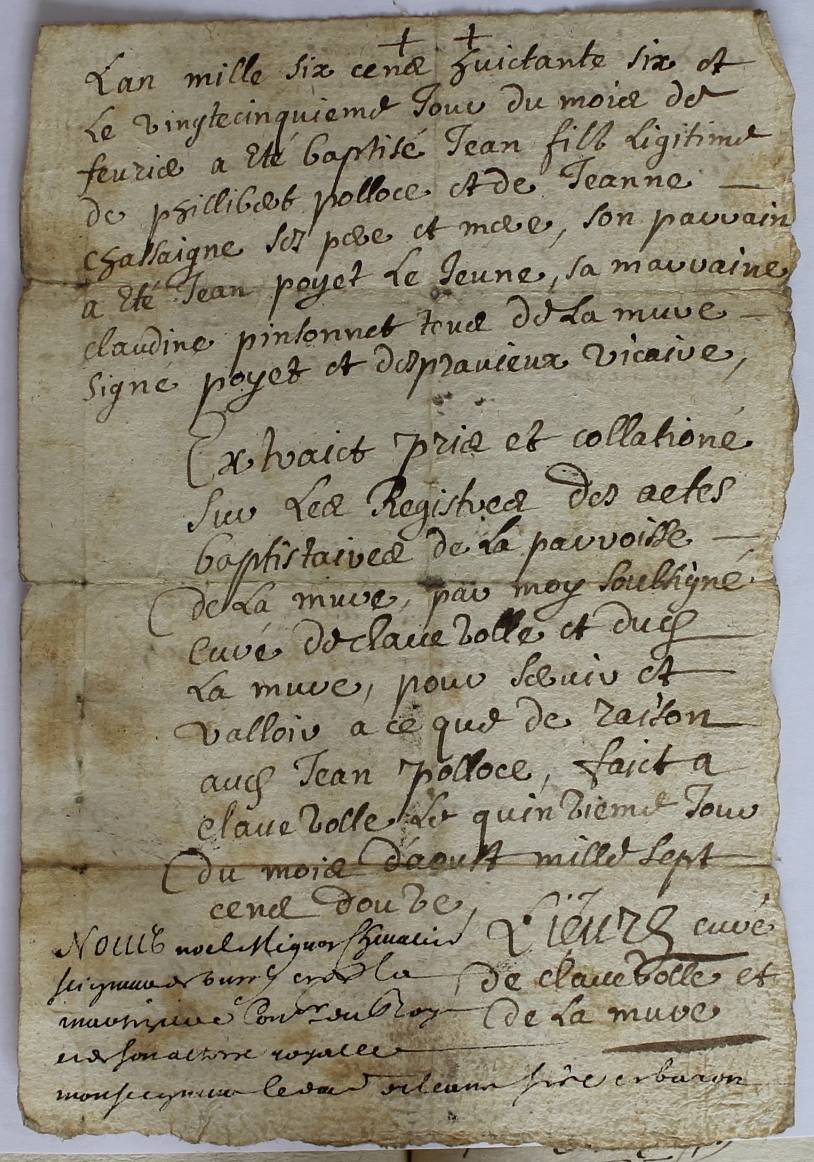 Lan mille six cens huictante six et
Le vingtecinquieme Jour du mois de
feurier a eté baptisé Jean fils Ligitime
de phillibert polloce et de Jeanne
chassaigne ses pere et mere, son parrain
a eté Jean poyet Le Jeune, sa marraine
claudine pinsonnet tous de La mure
signé poyet et despravieux vicaire,
Extraict pris et collationé
sur Les Registres des actes
baptistaires de La parroisse
de La mure, par moy soubsigné
curé de clauezolle et dud
La mure, pour servir et
valloir a ce que de raison
aud Jean polloce, faict a
claueZolle Le quinzieme Jour
du mois daoust mille sept
cens douze,
Lieure curé
de claueZolle et
de La mure
Nous noel Mignot Chevalier
seigneur de bussy
la
martiziere Conser du Roy
et de son altesse royalle
monseigneur le duc dorleans sire et baron